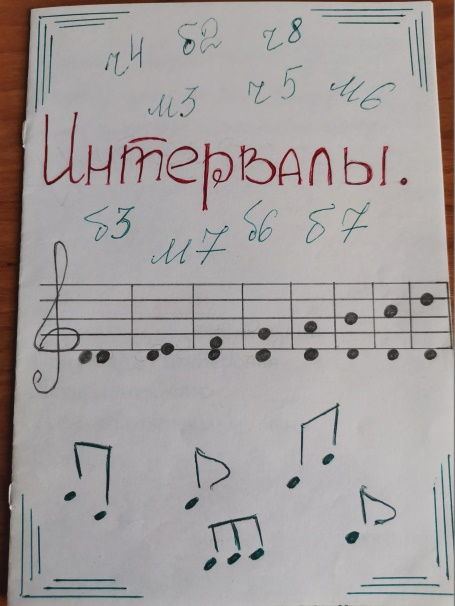 ч4 б2 ч8
м3 ч5 м6
Интервалы.
б3 м7 б6 б7